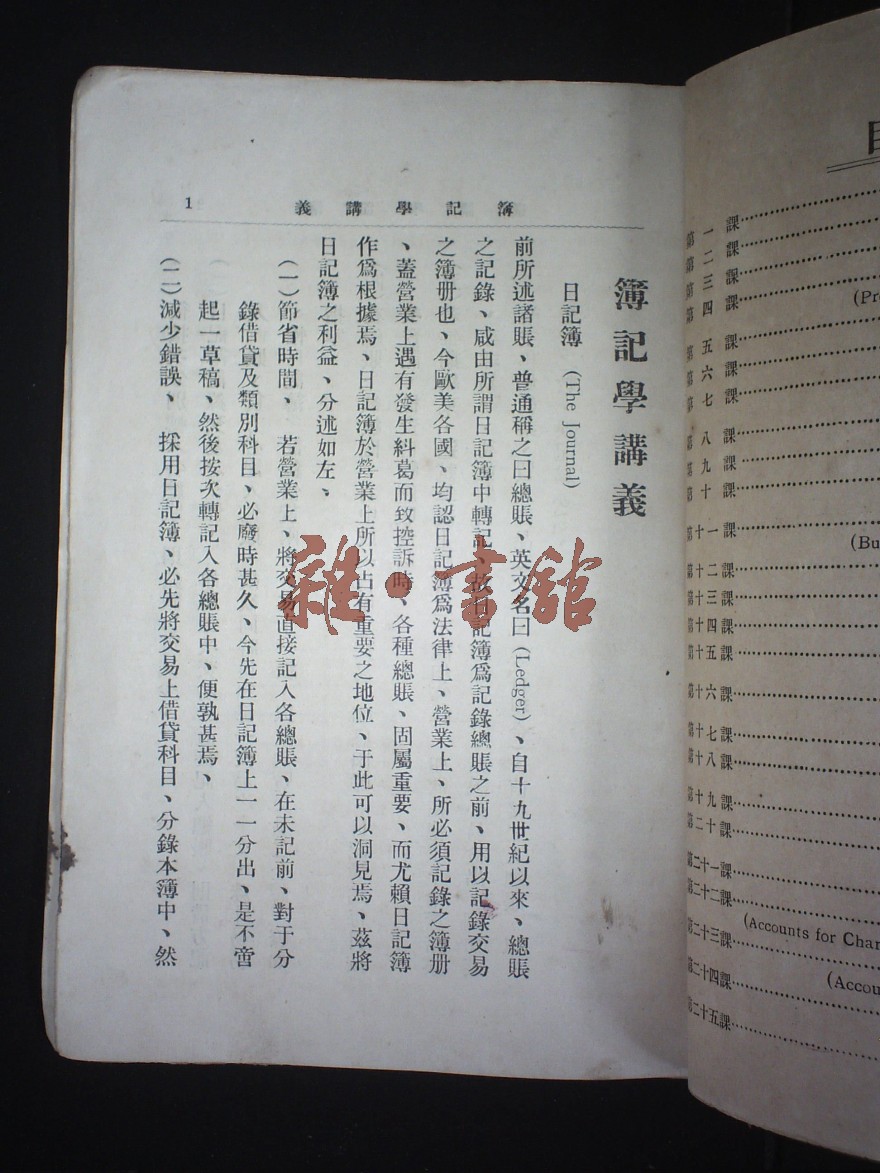 1
義講學記簿
簿記學講義
日記簿 (The Journal)
前所述諸賬、普通稱之曰總賬、英文名曰(Ledger)、自十九世紀以來、總賬
之記錄、咸由所謂日記簿中轉記、故日記簿爲記錄總賬之前、用以記錄交易
之簿册也、今歐美各國、均認日記簿爲法律上、營業上、所必須記錄之簿册
、蓋營業上遇有發生糾葛而致控訴時、各種總賬、固屬重要、而尤賴日記簿
作爲根據焉、日記簿於營業上所以占有重要之地位、于此可以洞見焉、茲將
日記簿之利益、分述如左、
(一)節省時間、 若營業上、將交易直接記入各總賬、在未記前、對于分
錄借貸及類別科目、必廢時甚久、今先在日記簿上一一分出、是不啻
起一草稿、然後按次轉記入各總賬中、便孰甚焉、
(二)減少錯誤、 採用日記簿、必先將交易上借貸科目、分錄本簿中、然
雜·書館
目
第一課
第二課
第三課
第四課
(Pr
第五課
第六課
第七課
第八課
第九課
第十課
第十一課
(Bu
第十二課
第十三課
第十四課
第十五課
第十六課
第十七課
第十八課
第十九課
第二十課
第二十一課
第二十二課
(Accounts for Char
第二十三課
第二十四課
(Accou
第二十五課